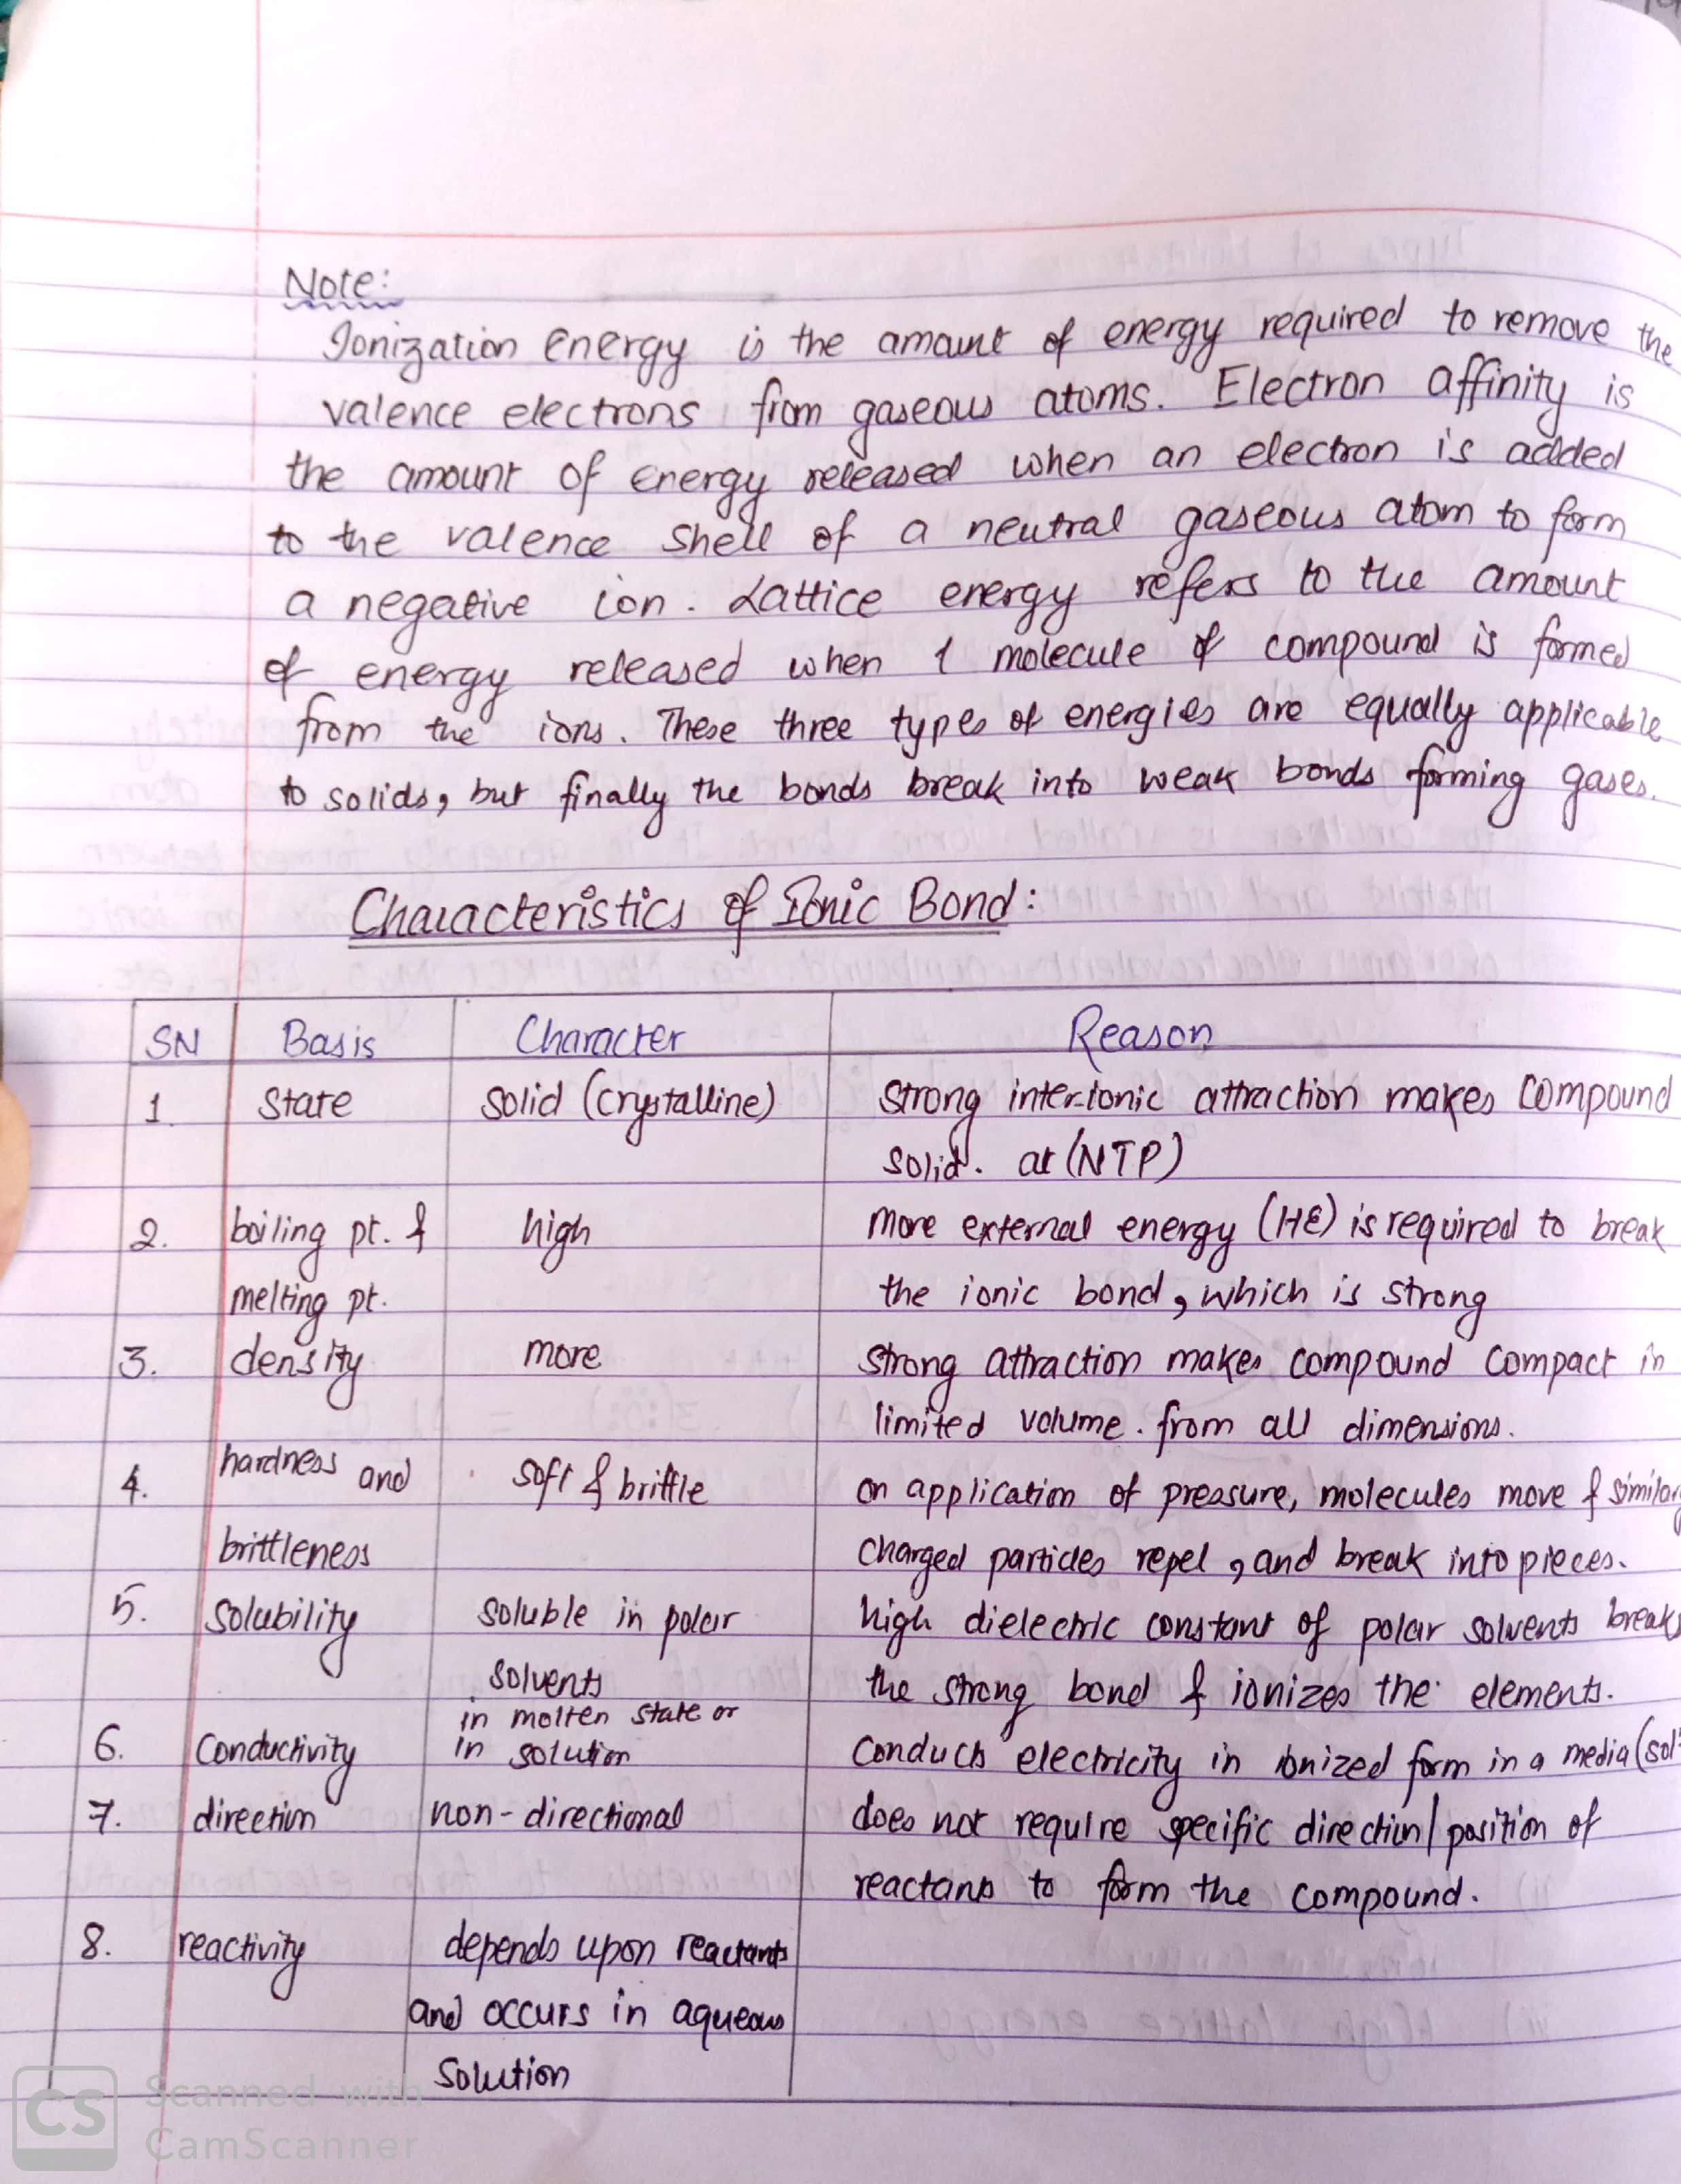 Note:
Ionization Energy is the amount of energy required to remove the
valence electrons from gaseous atoms. Electron affinity is
the amount of energy released when an electron is added
to the valence shell of a neutral gaseous atom to form
a negative ion. Lattice energy refers to the amount
of energy released when 1 molecule of compound is formed
from the ions. These three types of energies are equally applicable
to solids, but finally the bonds break into weak bonds forming gases.
Characteristics of Ionic Bond:
SN Basis Character Reason
1. State solid (crystalline) strong inter-ionic attraction makes compound
solid. at (NTP)
2. boiling pt. & high more external energy (HE) is required to break
melting pt. the ionic bond, which is strong
3. density more strong attraction makes compound compact in
limited volume. from all dimensions.
4. hardness and soft & brittle on application of pressure, molecules move & similar
brittleness charged particles repel, and break into pieces.
5. solubility soluble in polar high dielectric constant of polar solvents breaks
solvents the strong bond & ionizes the elements.
in molten state or
6. conductivity in solution conducts electricity in ionized form in a media (sol
7. direction non-directional does not require specific direction/position of
reactants to form the compound.
8. reactivity depends upon reactants
and occurs in aqueous
solution
CS Scanned with
CamScanner